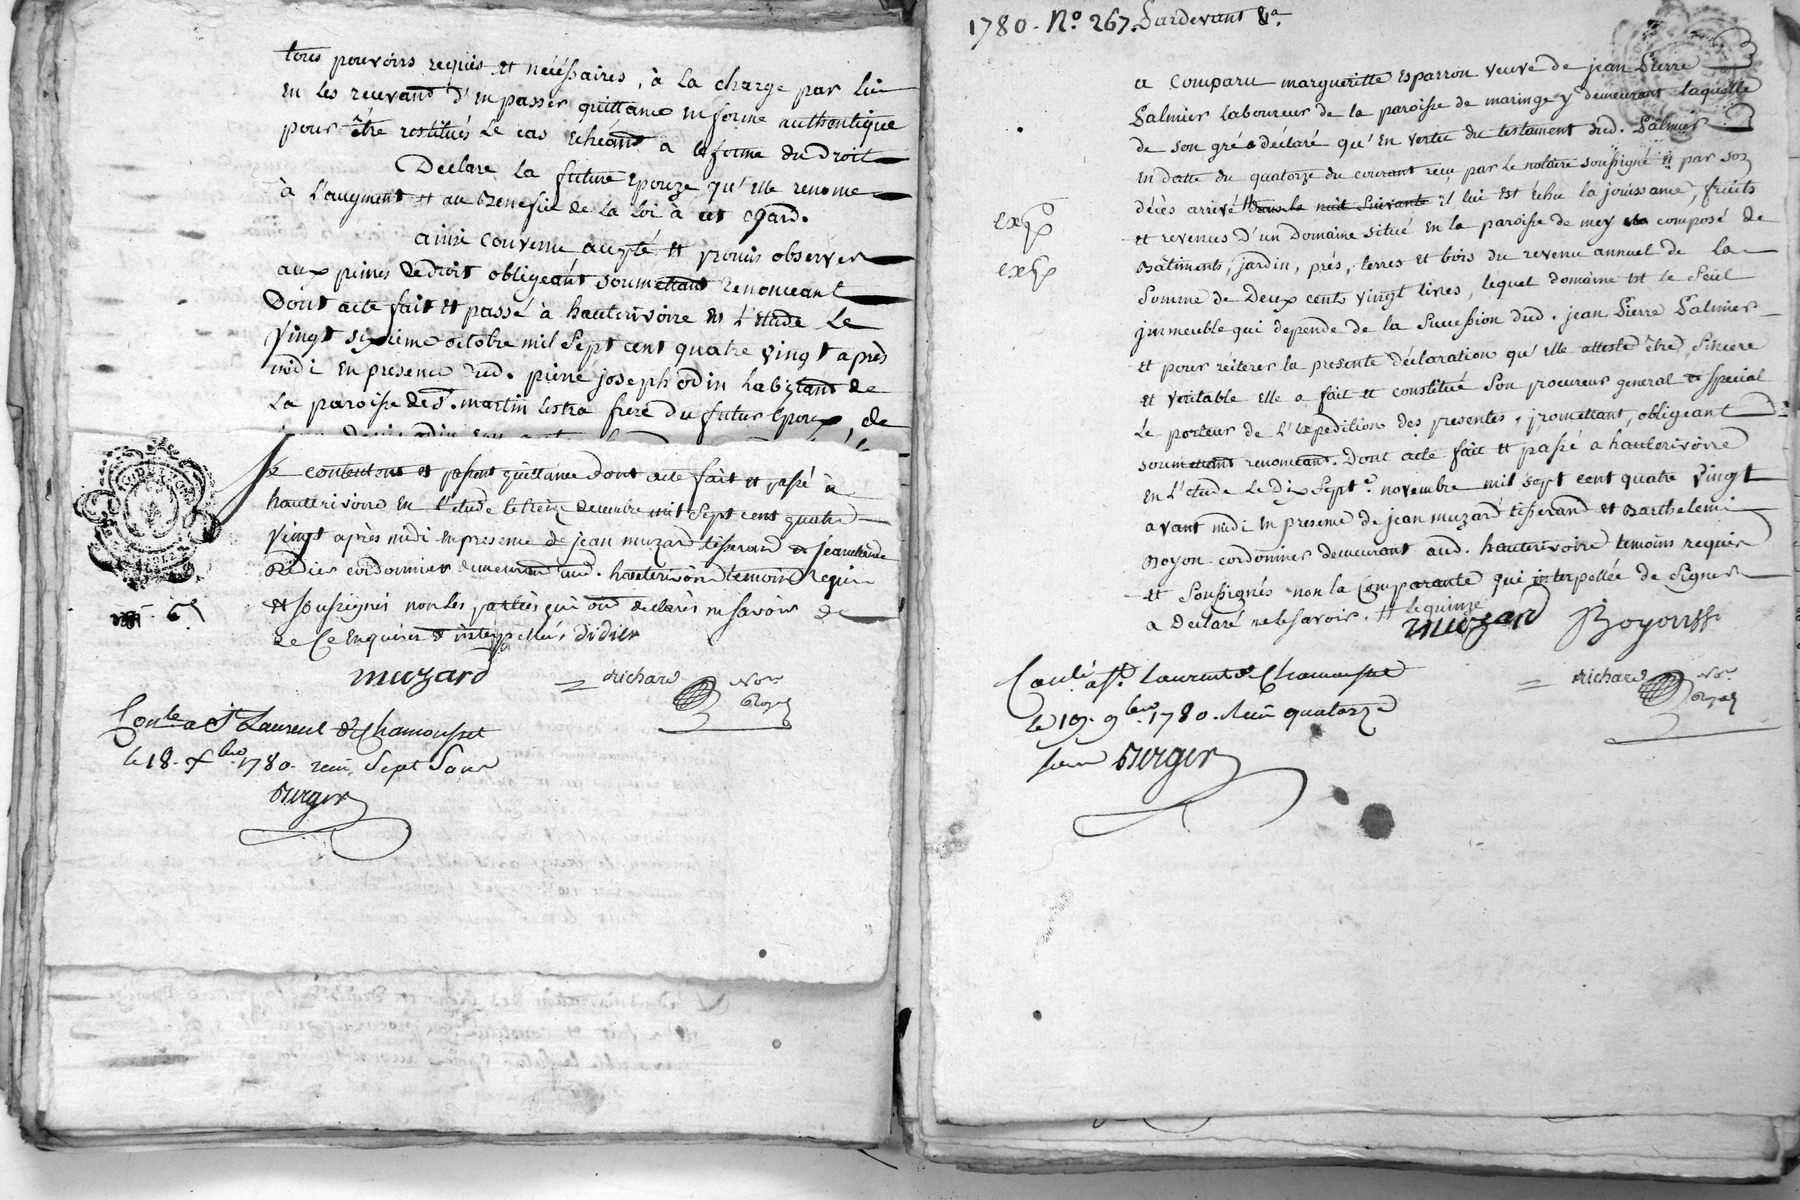 tous pouvoirs requis et nécéssaires, à la charge par lui
en les recevant d'en passer quittance en forme authentique
pour être restitués le cas echeant a la forme du Droit
Declare la future Epouze qu'elle renonce
à l'augment et au Benefice de la loi à cet egard.
ainsi convenu accepté et promis observer
aux peines de droit obligeant soumettant renonceant
Dont acte fait et passé à hauterivoire en l'etude Le
vingt sixieme octobre mil sept cent quatre vingt après
midi en presence dud. pierre joseph odin habitant de
la paroisse de St. martin lestra frere du futur Epoux, de
se contentent et passent quittance dont acte fait et passé à
hauterivoire en l'etude le treize decembre mil sept cent quatre
vingt après midi en presence de jean muzard tisserand et
Didier cordonnier demeurant aud. hauterivoire temoins requis
et soussignés non les parties qui ont declarés ne savoir
de ce Enquises et interpellées Didier
muzard
richard Nore
Royal
Conle a St Laurent de Chamousset
le 18. Xbre 1780. reçu sept sous
Berger
1780. No. 267. Pardevant &a.
a comparu margueritte Esparron veuve de jean Pierre
Palmier laboureur de la paroisse de maringe y demeurant laquelle
de son gré a déclaré qu'en vertu du testament dud. Palmier
en datte du quatorze du courant reçu par le notaire soussigné et par son
décès arrivé dans la nuit suivante il lui est echu la jouissance, fruits
exp
et revenus d'un Domaine situé en la paroisse de mey composé de
exp
Bâtiments, jardin, prés, terres et bois du revenu annuel de la
somme de Deux cents vingt livres, lequel domaine est le seul
immeuble qui depende de la succession dud. jean Pierre Palmier
et pour réiterer la presente déclaration qu'elle atteste être sincere
et veritable elle a fait et constitué son procureur general et special
le porteur de l'expedition des presentes, promettant, obligeant
soumettant renonceant. Dont acte fait et passé a hauterivoire
en l'etude le Dix septe. novembre mil sept cent quatre vingt
avant midi en presence de jean muzard tisserand et Barthelemi
Boyon cordonnier demeurant aud. hauterivoire temoins requis
et soussignés non la comparante qui interpellée de signer
a declaré ne le savoir. # le quinze
muzard Boyon
richard Nore
Royal
Conlé a St. Laurent de Chamousset
le 19. 9bre 1780. reçu quatorze
sous Berger